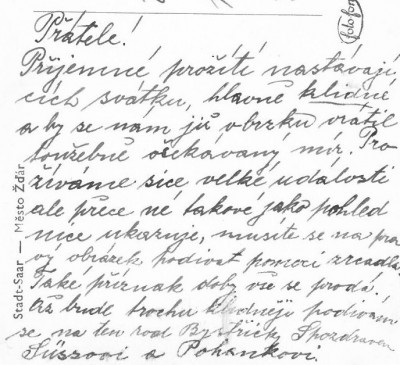 Přátelé!
Příjemné prožití nastávají
cích svátků, hlavně klidné
a by se nám již v brzku vrátil
toužebně očekávaný mír. Pro
žíváme sice velké události
ale přece né takové jako pohled
nice ukazuje, musíte se na prav
vý obrázek podívat pomocí zrcadla.
Také příznak doby vše se prodá!
Až bude trochu klidněji podíváme
se na ten rod Bystřický S pozdravem
Süssovi a Pohankovi.
Stadt-Saar — Město Žďár
fotofon